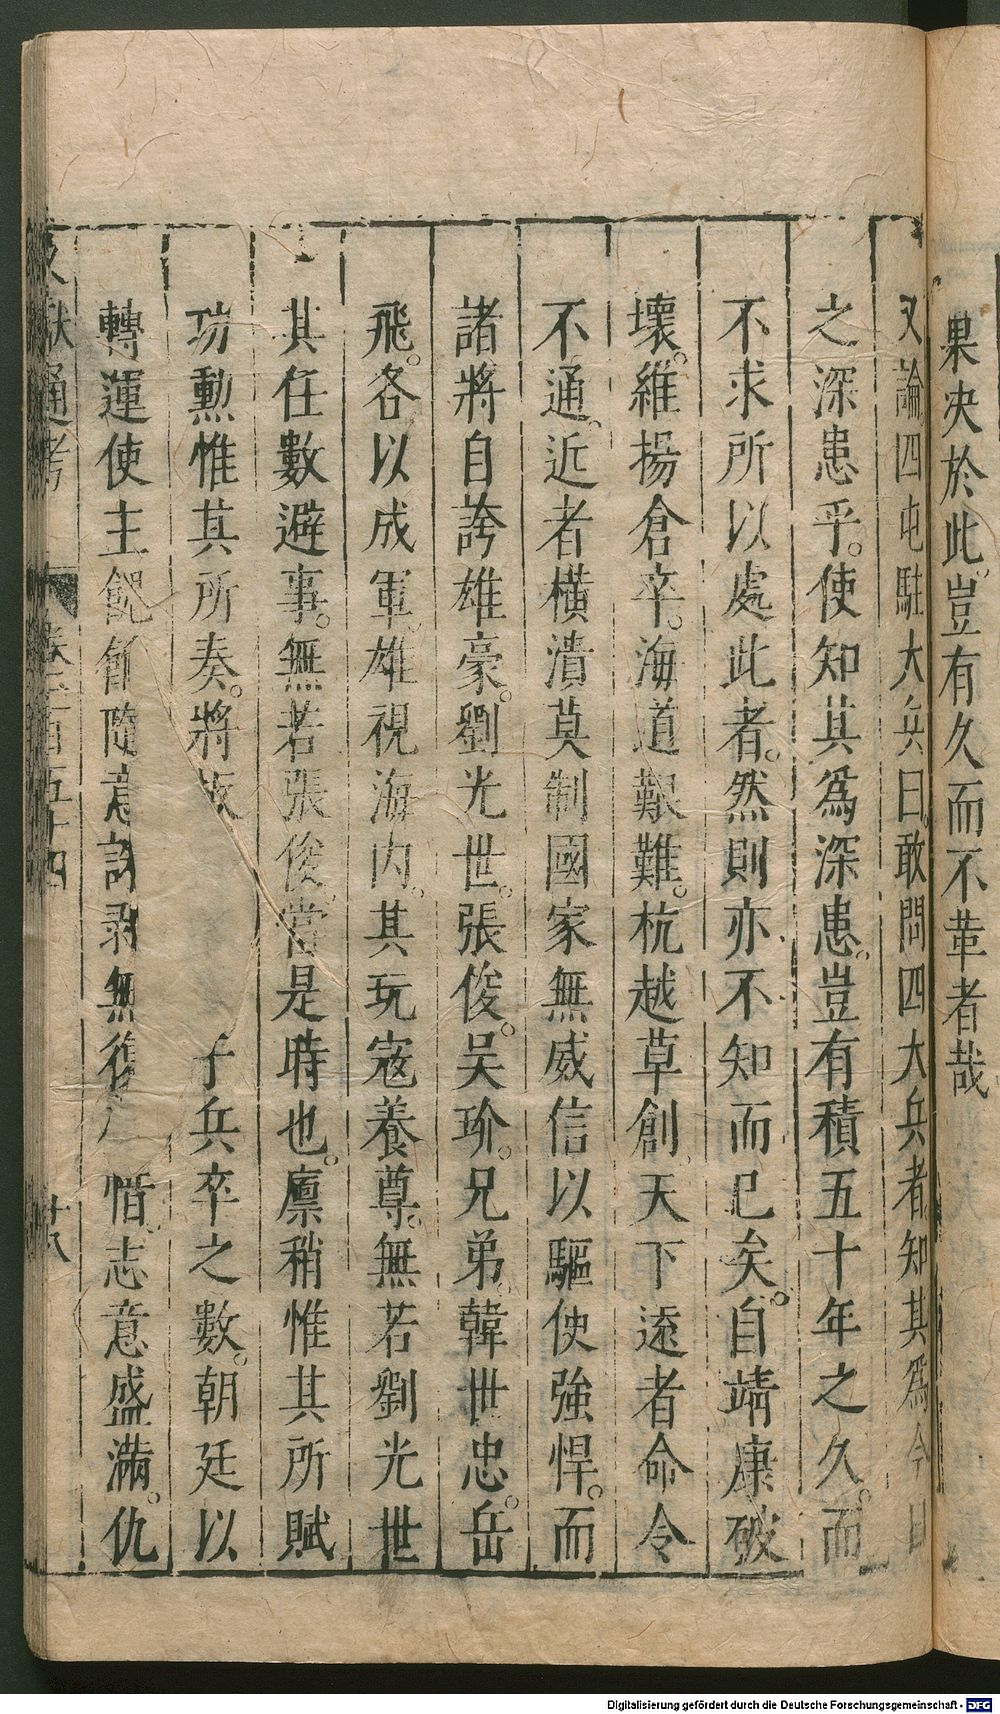 果决於此。豈有久而不革者哉
又論四屯駐大兵曰。敢問四大兵者。知其爲今日
之深患乎。使知其爲深患。豈有積五十年之久。而
不求所以處此者。然則亦不知而已矣。自靖康破
壞。維揚倉卒。海道艱難。杭越草創。天下遠者命令
不通。近者橫潰莫制國家無威信以驅使強悍。而
諸將自誇雄豪。劉光世。張俊。吴玠。兄弟。韓世忠。岳
飛。各以成軍。雄視海内。其玩寇養尊。無若劉光世
其任數避事。無若張俊。當是時也。廩稍惟其所賦
功勲惟其所奏。將版 子兵卒之數。朝廷以
轉運使主餽餉隨意誅剥無復 惜。志意盛滿。仇
文獻通考 卷一百五十四 十八
Digitalisierung gefördert durch die Deutsche Forschungsgemeinschaft - DFG